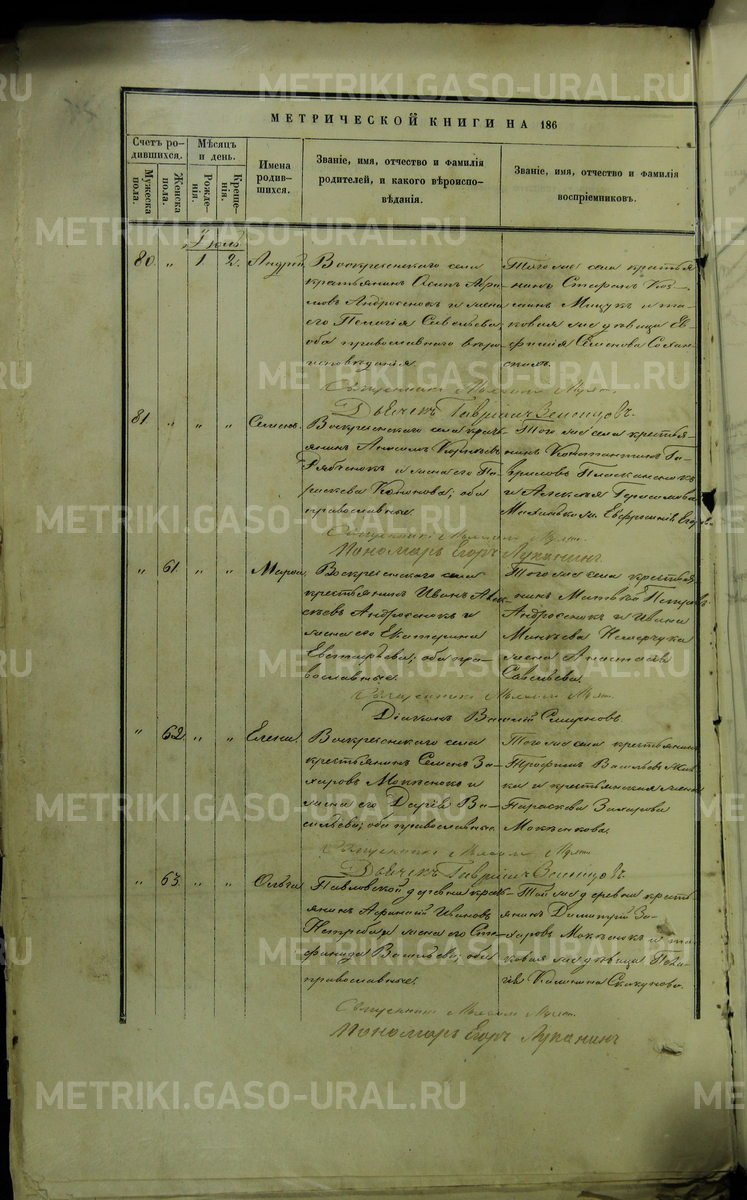 МЕТРИЧЕСКОЙ КНИГИ НА 186
Счетъ ро-
дившихся.
Мужеска
пола.
Женска
пола.
Мѣсяцъ
и день.
Рожде-
нія.
Креще-
нія.
Имена
родив-
шихся.
Званіе, имя, отчество и фамилія
родителей, и какого вѣроиспо-
вѣданія.
Званіе, имя, отчество и фамилія
воспріемниковъ.
Іюль
80. „ 1. 2. Андрей
Воскресенскаго села
крестьянинъ Осипъ
Андросенокъ и жена
его Пелагія Савельева,
оба православнаго вѣро-
исповѣданія
Того же села крестья-
нинъ Стефанъ Коз-
минъ Мицукъ и та-
ковая же дѣвица Е-
фимія Семенова
Священникъ
Дьячекъ Гавріилъ
81. „ „ „ Семенъ.
Воскресенскаго села кресть-
янинъ
Рябченокъ и жена его Па-
раскева Кононова; оба
православные.
Того же села крестья-
нинъ Константинъ Га-
вриловъ
и Герасимова
Священникъ
Пономарь Егоръ Лупанинъ
„ 61. „ „ Марѳа
Воскресенскаго села
крестьянинъ Иванъ Алек-
сѣевъ Андросенокъ и
жена его Екатерина
оба пра-
вославные.
Того же села крестья-
нинъ Матвѣй Петровъ
Андросенокъ и Ивана
жена Анастасія
Савельева.
Священникъ
Діаконъ Василій Смирновъ
„ 62. „ „ Елена.
Воскресенскаго села
крестьянинъ Семенъ За-
харовъ Мокѣенокъ и
жена его Дарья Ва-
сильева; оба православные.
Того же села крестьянинъ
Трофимъ Васильевъ
и крестьянская жена
Параскева Захарова
Мокѣенкова.
Священникъ
Дьячекъ Гавріилъ
„ 63. „ „ Ольга
Павловской деревни кресть-
янинъ Афанасій Ивановъ
Нетреба и жена его Сте-
фанида Васильева; оба
православные.
Той же деревни кресть-
янинъ Димитрій За-
харовъ Мокѣенокъ и та-
ковая же дѣвица Пела-
гія Калинина Скакунова.
Священникъ
Пономарь Егоръ Лупанинъ
METRIKI.GASO-URAL.RU